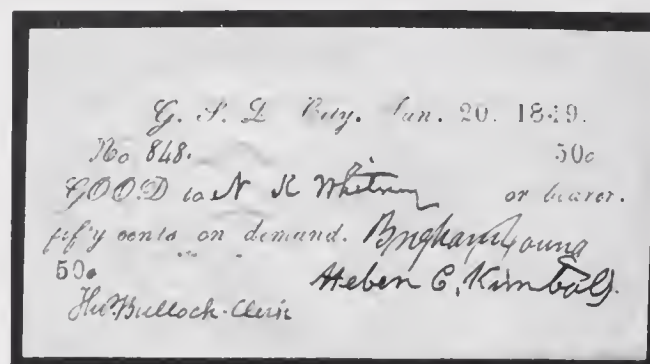 G. S. L City. Jan. 20. 1849.
No 848. 50c
GOOD to N K Whitney or bearer.
fifty cents on demand. Brigham Young
50c Heber C. Kimball.
Tho. Bullock-Clerk